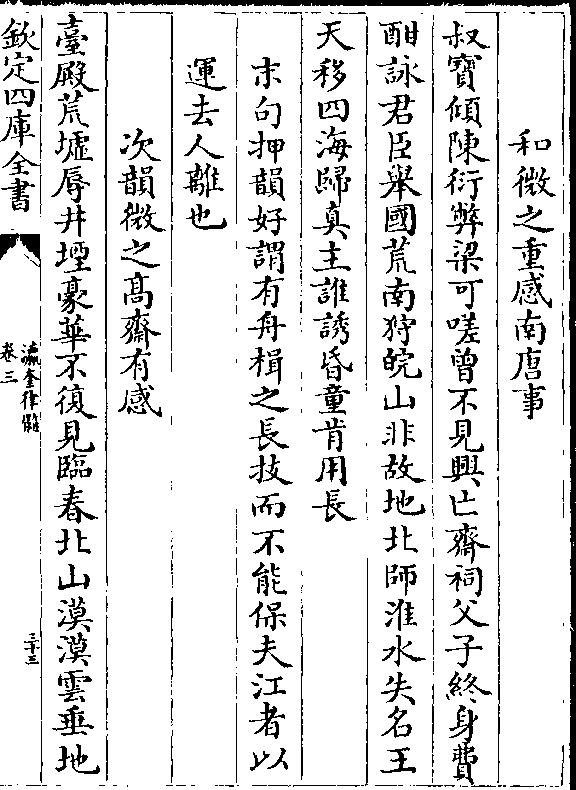 和微之重感南唐事
叔寶傾陳衍弊梁可嗟曽不見興亡齋祠父子終身費
酣詠君臣舉國荒南狩皖山非故地北師淮水失名王
天移四海歸真主誰誘昏童肯用長
末句押韻好謂有舟楫之長技而不能保夫江者以
運去人離也
次韻微之髙齋有感
臺殿荒墟辱井堙豪華不復見臨春北山漠漠雲垂地
欽定四庫全書
瀛奎律髓
卷三
三十三